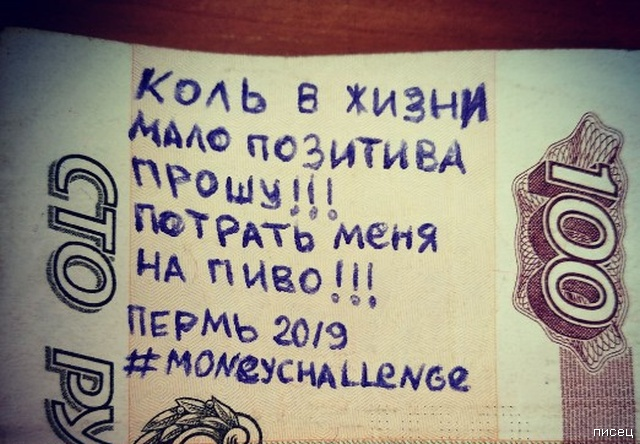 КОЛЬ В ЖИЗНИ
МАЛО ПОЗИТИВА
ПРОШУ!!!
ПОТРАТЬ МЕНЯ
НА ПИВО!!!
ПЕРМЬ 2019
#MONEYCHALLENGE
СТО РУ
100
писец